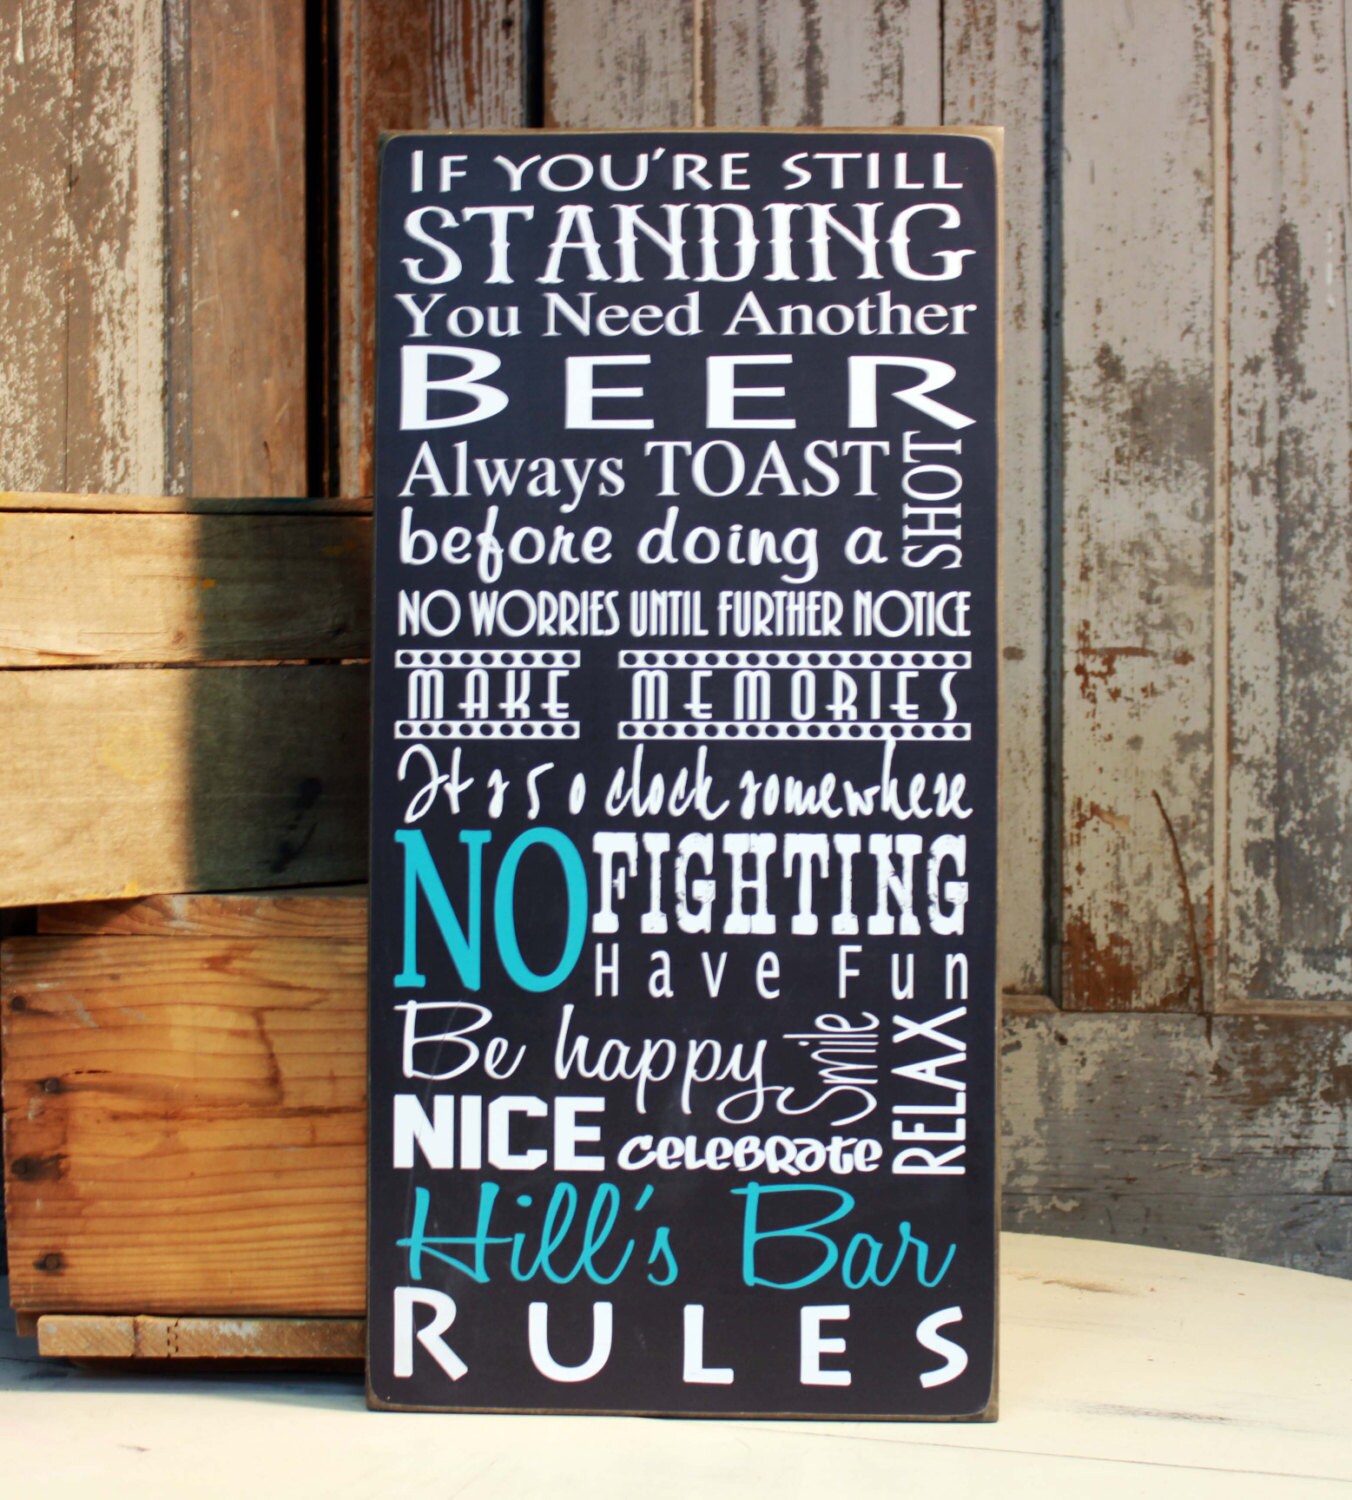 IF YOU'RE STILL
STANDING
You Need Another
BEER
Always TOAST
before doing a SHOT
NO WORRIES UNTIL FURTHER NOTICE
MAKE MEMORIES
It s 5 o clock somewhere
NO FIGHTING
Have Fun
Be happy Smile RELAX
NICE CELEBRATE
Hill's Bar
RULES